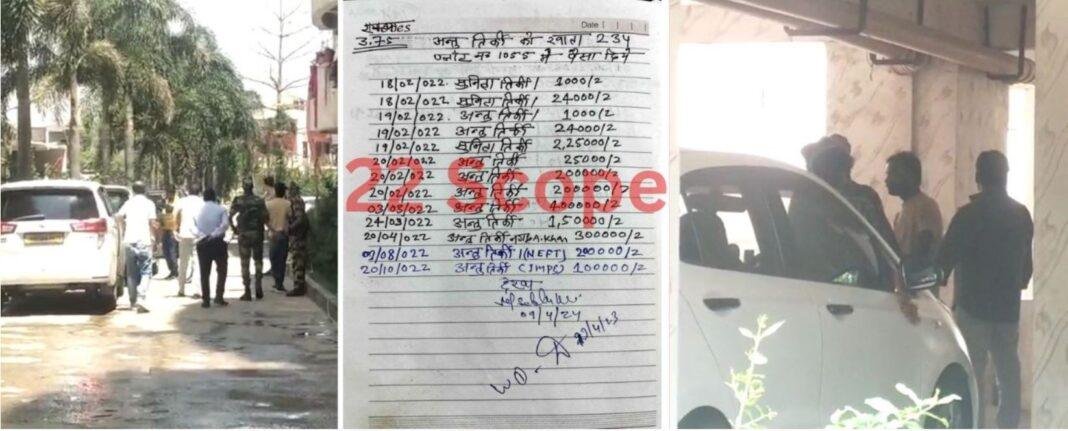 Date
3.75 अन्तु तिर्की को खाता 234
प्लॉट नं 1055 में पैसा दिये
18/02/022. सुनिता तिर्की / 1000/2
18/02/022. सुनिता तिर्की / 24000/2
19/02/022. अन्तु तिर्की / 1000/2
19/02/022 अन्तु तिर्की 24000/2
19/02/022 सुनिता तिर्की 2,25000/2
20/02/022 अन्तु तिर्की 25000/2
20/02/022 अन्तु तिर्की 200000/2
20/02/022 अन्तु तिर्की 200000/2
03/03/022 अन्तु तिर्की 400000/2
24/03/022 अन्तु तिर्की 1,50000/2
20/04/022 अन्तु तिर्की A.Khan 300000/2
02/08/022 अन्तु तिर्की / (NEFT) 200000/2
20/10/022 अन्तु तिर्की (IMPS) 100000/2
09/4/24
/4/23
24 Scope